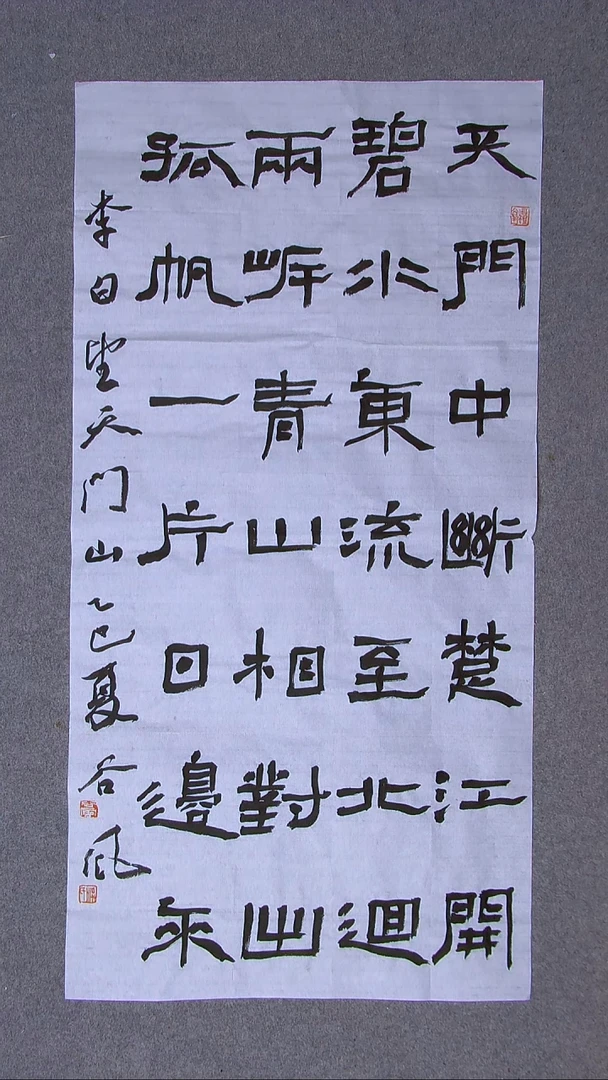 天門中斷楚江開
碧水東流至北迴
兩岸青山相對出
孤帆一片日邊來
李白望天门山乙巳夏谷风